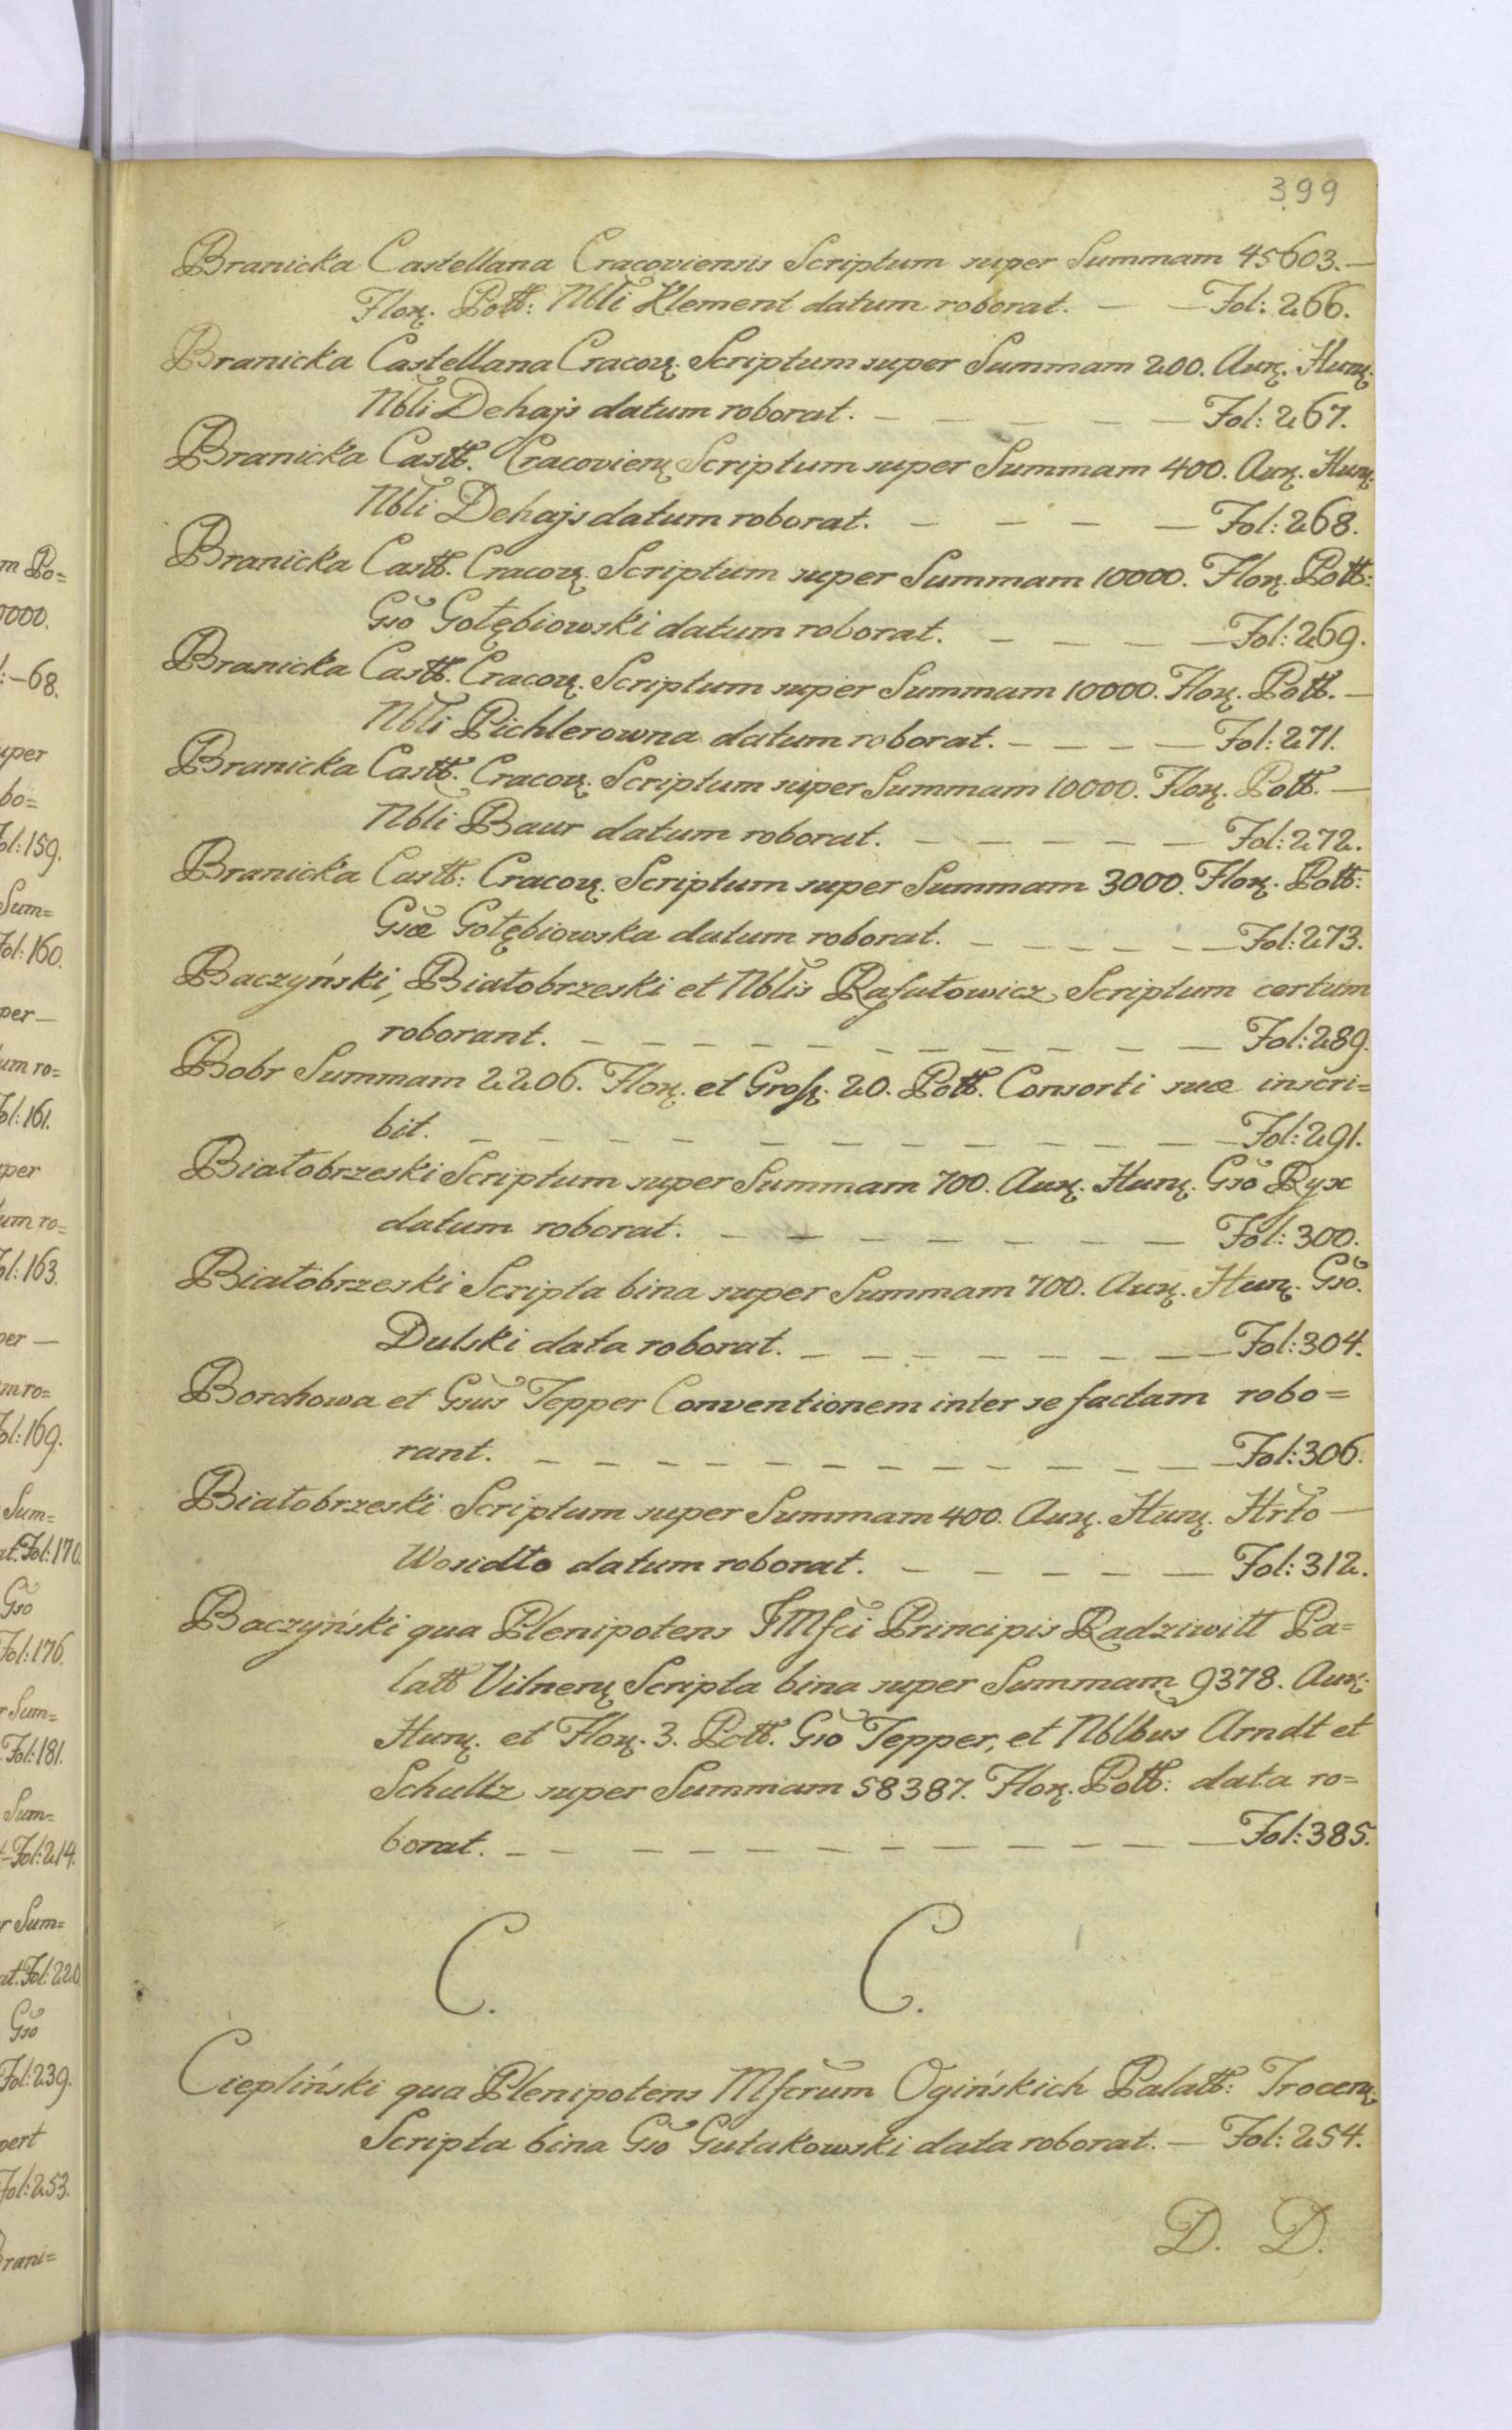 399
Branicka Castellana Cracoviensis Scriptum super Summam 45603.—
Florꝝ. Poll: Nbli Klement datum roborat. — — Fol: 266.
Branicka Castellana Cracovꝝ. Scriptum super Summam 200. Aurꝝ. Hunꝝ.
Nbli Dehajs datum roborat. — — — — — Fol: 267.
Branicka Castt. Cracovienꝝ Scriptum super Summam 400. Aurꝝ. Hunꝝ.
Nbli Dehajs datum roborat. — — — — — Fol: 268.
Branicka Castt. Cracovꝝ. Scriptum super Summam 10000. Florꝝ. Poll:
Gso Gołębiowski datum roborat. — — — — Fol: 269.
Branicka Castt. Cracovꝝ. Scriptum super Summam 10000. Florꝝ. Poll. —
Nbli Pichlerowna datum roborat. — — — — Fol: 271.
Branicka Castt. Cracovꝝ. Scriptum super Summam 10000. Florꝝ. Poll. —
Nbli Baur datum roborat. — — — — — Fol: 272.
Branicka Castt: Cracovꝝ. Scriptum super Summam 3000. Florꝝ. Poll:
Gsæ Gołębiowska datum roborat. — — — — — Fol: 273.
Baczyński, Białobrzeski et Nblis Rafałowicz Scriptum certum
roborant. — — — — — — — — — Fol: 289.
Bobr Summam 2206. Florꝝ. et Grosꝝ. 20. Poll. Consorti suæ inscri=
bit. — — — — — — — — — — — Fol: 291.
Białobrzeski Scriptum super Summam 700. Aurꝝ. Hunꝝ. Gso Ryx
datum roborat. — — — — — — — — Fol: 300.
Białobrzeski Scripta bina super Summam 700. Aurꝝ. Hunꝝ. Gso.
Dulski data roborat. — — — — — — — Fol: 304.
Borchowa et Gsus Tepper Conventionem inter se factam robo=
rant. — — — — — — — — — — — Fol: 306.
Białobrzeski Scriptum super Summam 400. Aurꝝ. Hunꝝ. Hrto —
Wosidło datum roborat. — — — — — Fol: 312.
Baczyński qua Plenipotens IMfci Principis Radziwiłł Pa=
latt Vilnenꝝ Scripta bina super Summam 9378. Aurꝝ.
Hunꝝ. et Florꝝ. 3. Poll. Gso Tepper, et Nblbus Arndt et
Schultz super Summam 58387. Florꝝ. Poll: data ro=
borat. — — — — — — — — — — — Fol: 385.
C. C.
Ciepliński qua Plenipotens Mfcrum Ogińskich Palatt: Trocenꝝ.
Scripta bina Gso Gutakowski data roborat. — Fol: 254.
D. D.
m Po=
0000.
l:—68.
uper
bo=
ol: 159.
Sum=
Fol: 160.
per —
um ro=
ol: 161.
per
um ro=
ol: 163.
per —
m ro=
ol: 169.
Sum=
at. Fol: 170.
Gso
Fol: 176.
r Sum=
Fol: 181.
Sum=
— Fol: 214.
r Sum=
at. Fol: 220.
Gso
Fol: 239.
pert
Fol: 253.
Brani=